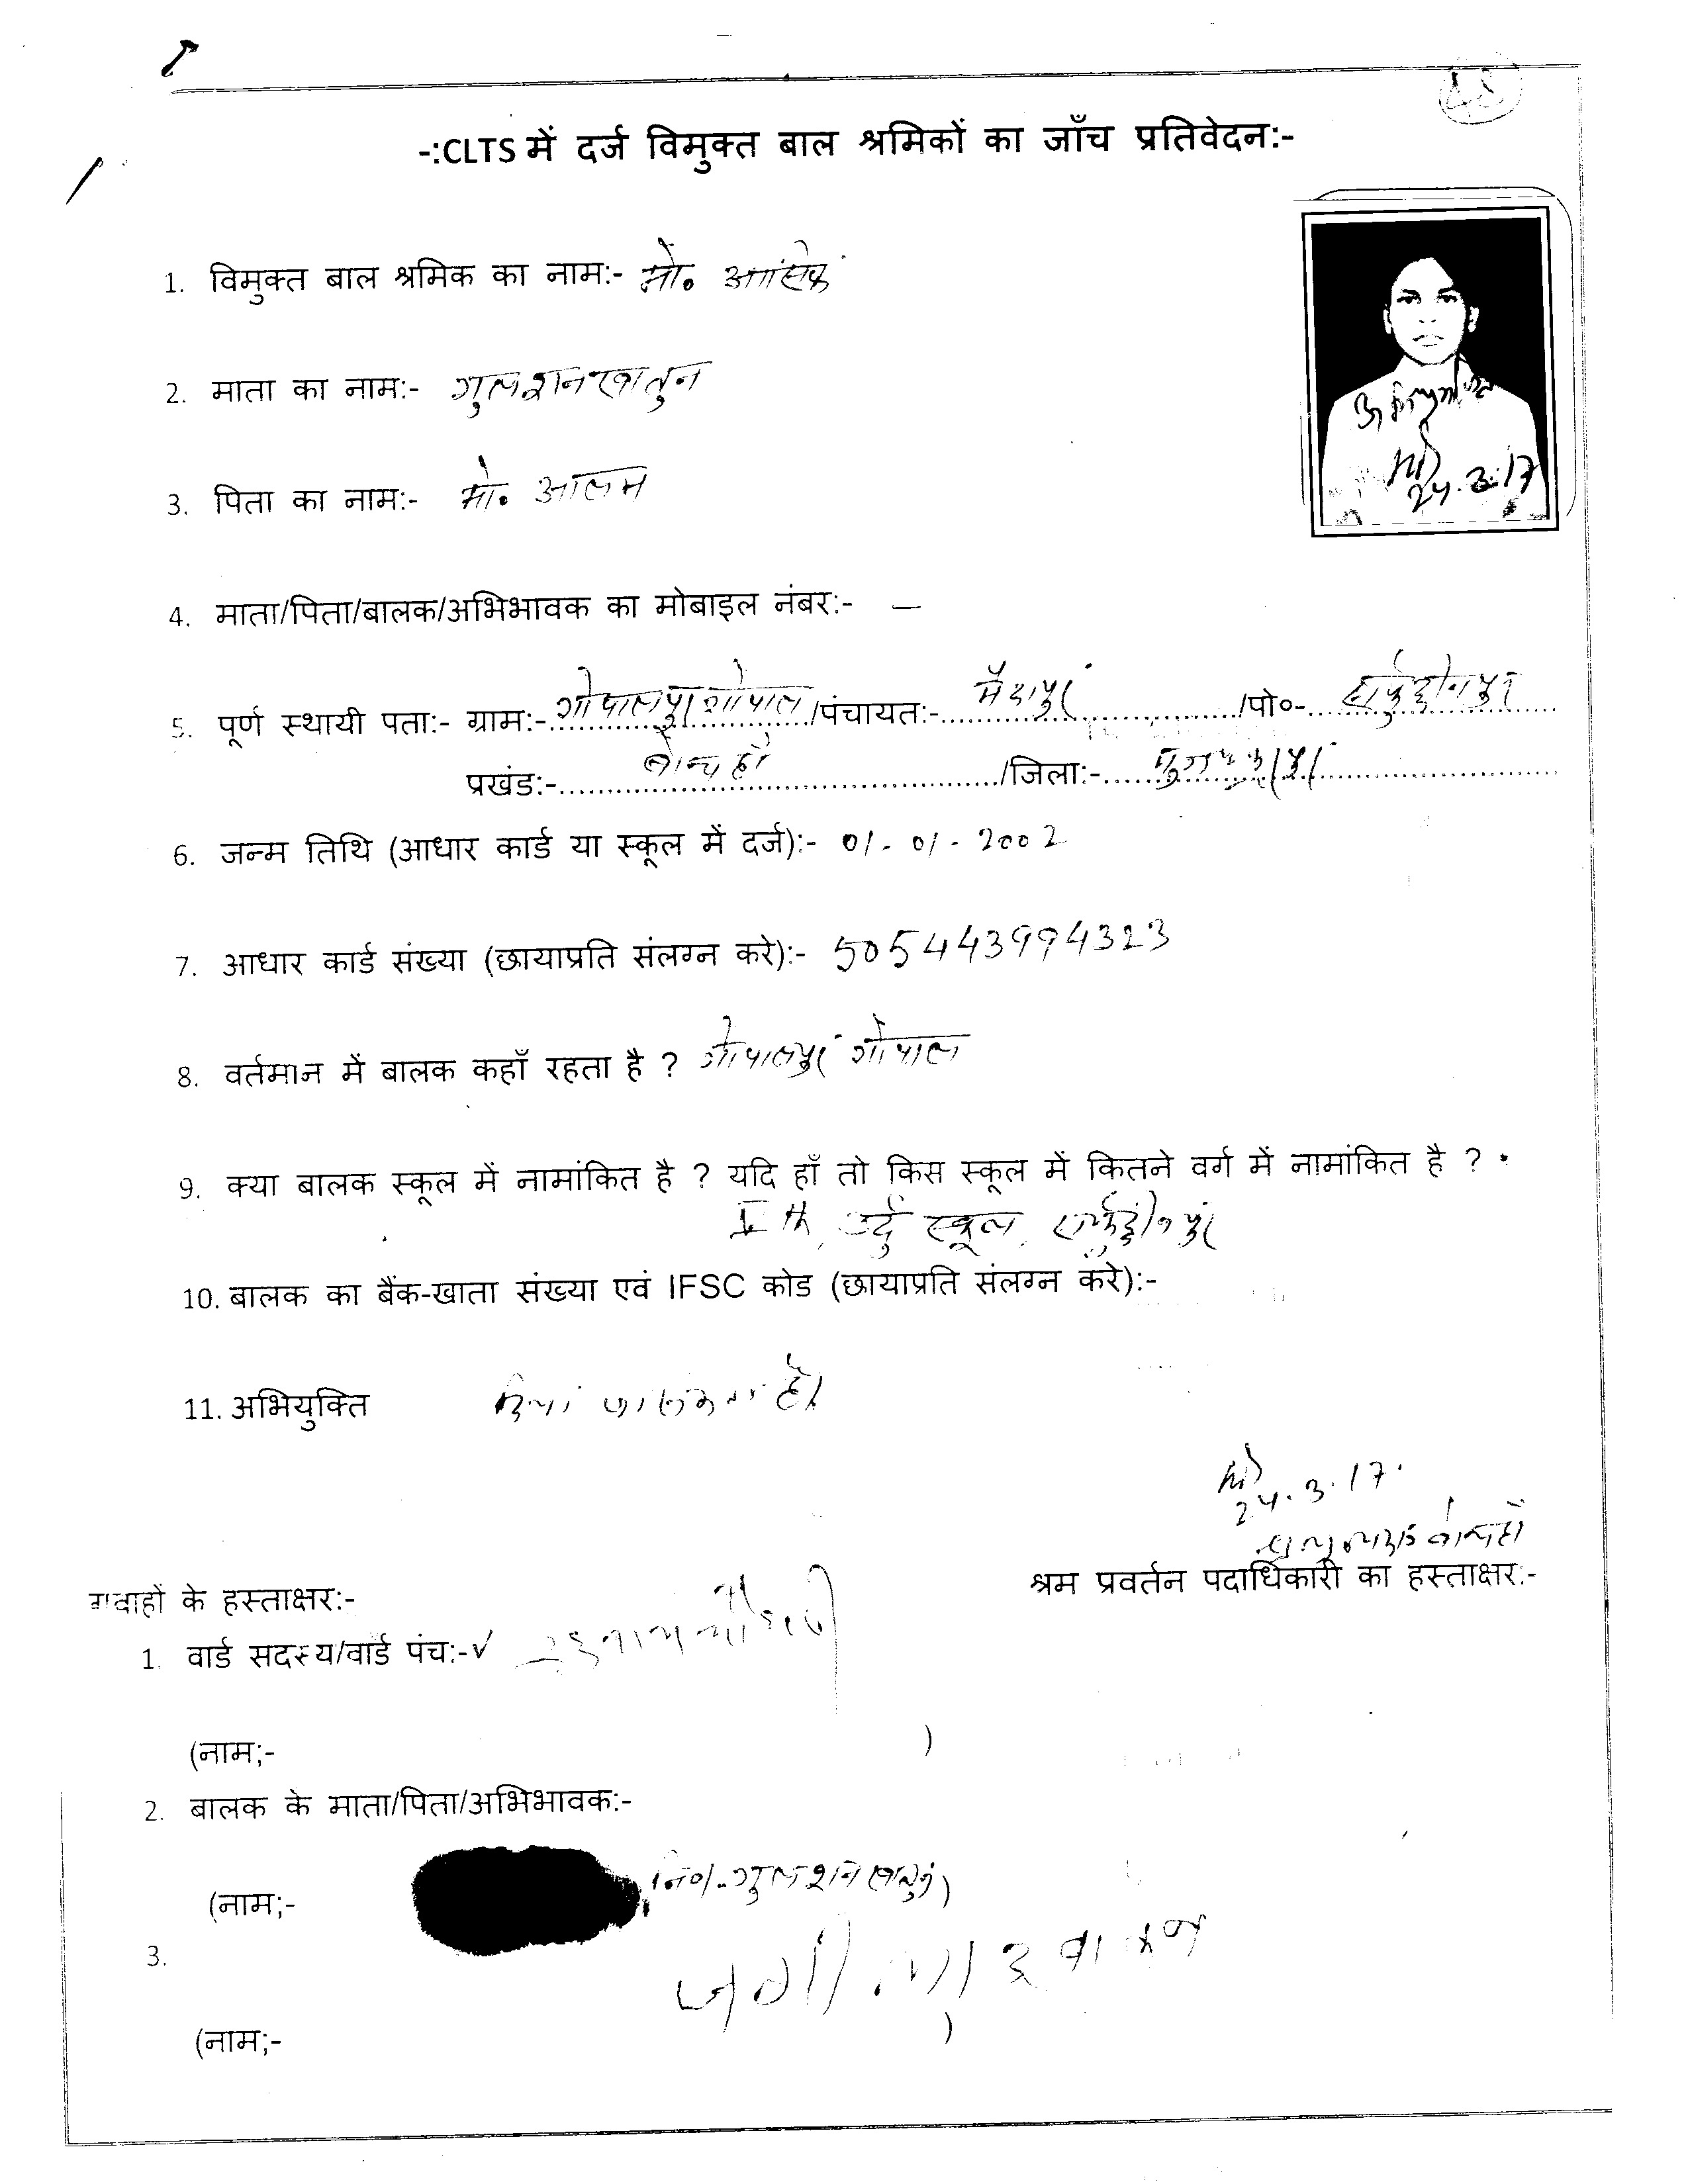 -:CLTS में दर्ज विमुक्त बाल श्रमिकों का जाँच प्रतिवेदन:-
1. विमुक्त बाल श्रमिक का नाम:- मो॰ आसिक
2. माता का नाम:- गुलशन खातुन
3. पिता का नाम:- मो॰ आलम
24.3.17
4. माता/पिता/बालक/अभिभावक का मोबाइल नंबर:- —
5. पूर्ण स्थायी पता:- ग्राम:- गोपालपुर गोपाल /पंचायत:- मैदापुर /पो०-
प्रखंड:- बोचहाँ /जिला:- मुजफ्फरपुर
6. जन्म तिथि (आधार कार्ड या स्कूल में दर्ज):- 01-01-2002
7. आधार कार्ड संख्या (छायाप्रति संलग्न करे):- 505443994323
8. वर्तमान में बालक कहाँ रहता है ? गोपालपुर गोपाल
9. क्या बालक स्कूल में नामांकित है ? यदि हाँ तो किस स्कूल में कितने वर्ग में नामांकित है ?
उर्दु स्कूल,
10. बालक का बैंक-खाता संख्या एवं IFSC कोड (छायाप्रति संलग्न करे):-
11. अभियुक्ति
24.3.17
बोचहाँ
श्रम प्रवर्तन पदाधिकारी का हस्ताक्षर:-
गवाहों के हस्ताक्षर:-
1. वार्ड सदस्य/वार्ड पंच:-
(नाम;- )
2. बालक के माता/पिता/अभिभावक:-
(नाम;- नि०-गुलशन खातुन)
3.
(नाम;- )